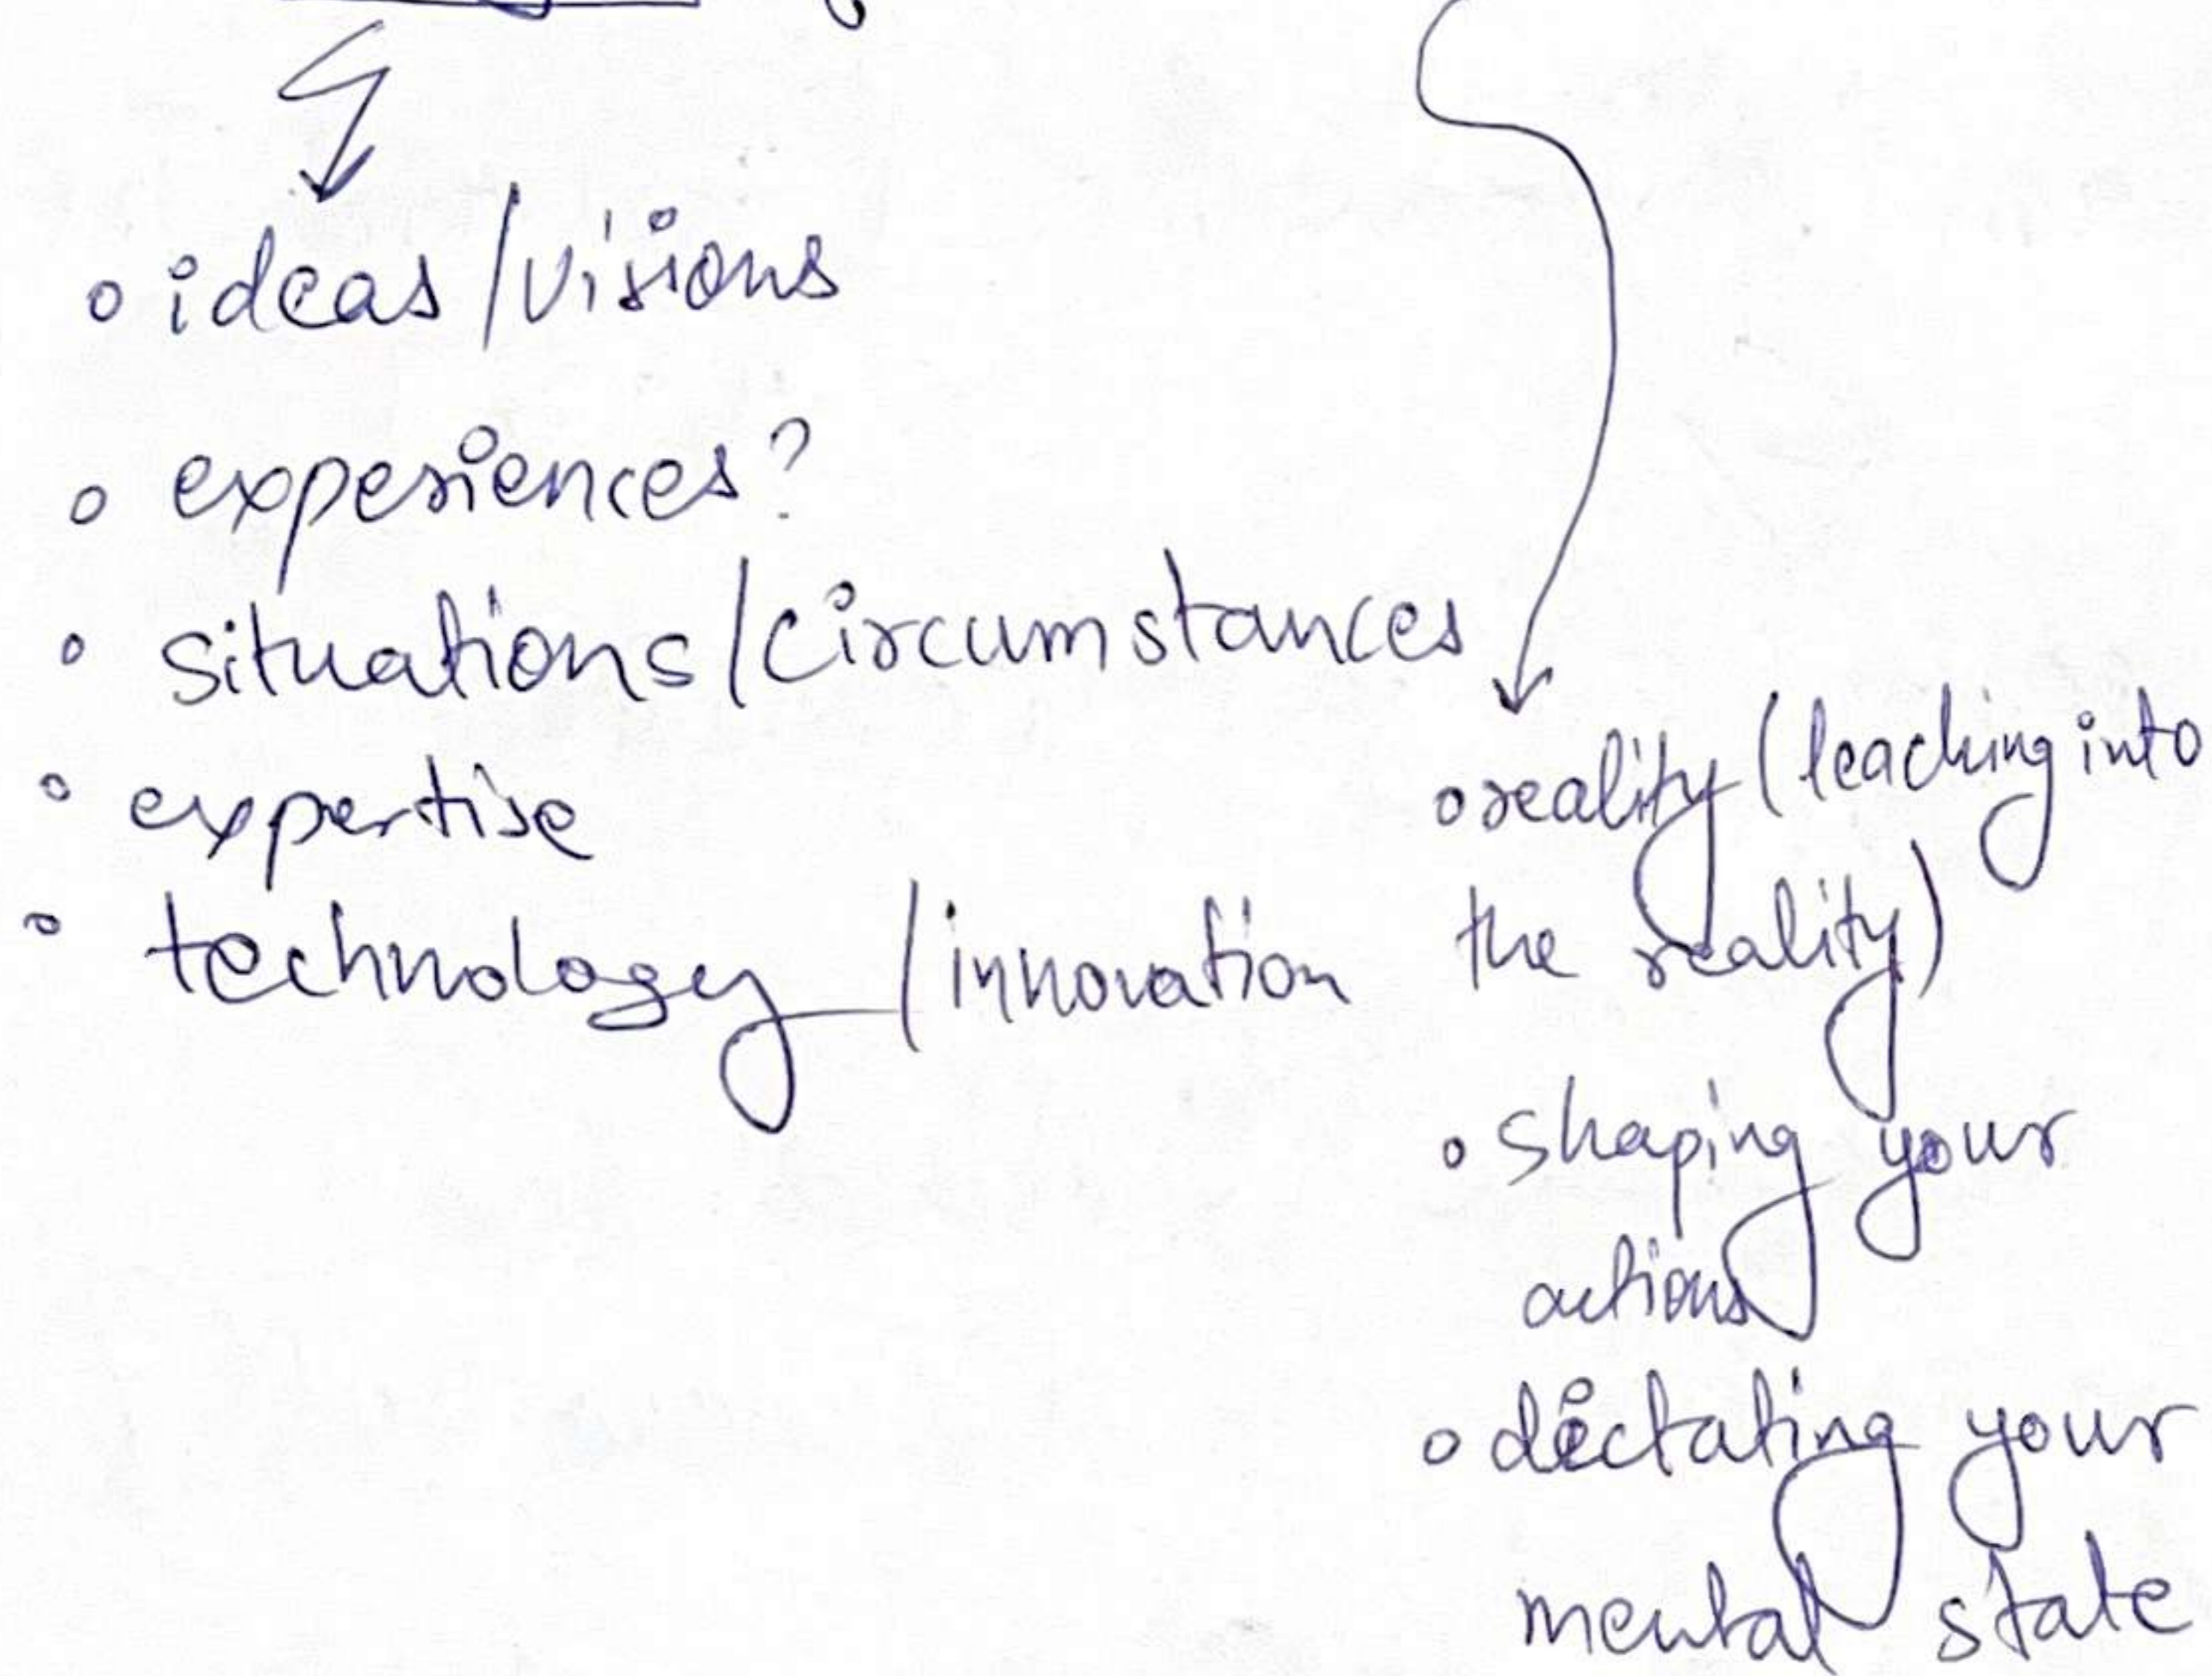 ideas/visions
experiences?
situations/circumstances
expertise
technology/innovation
reality (leaching into
the reality)
shaping your
actions
dictating your
mental state